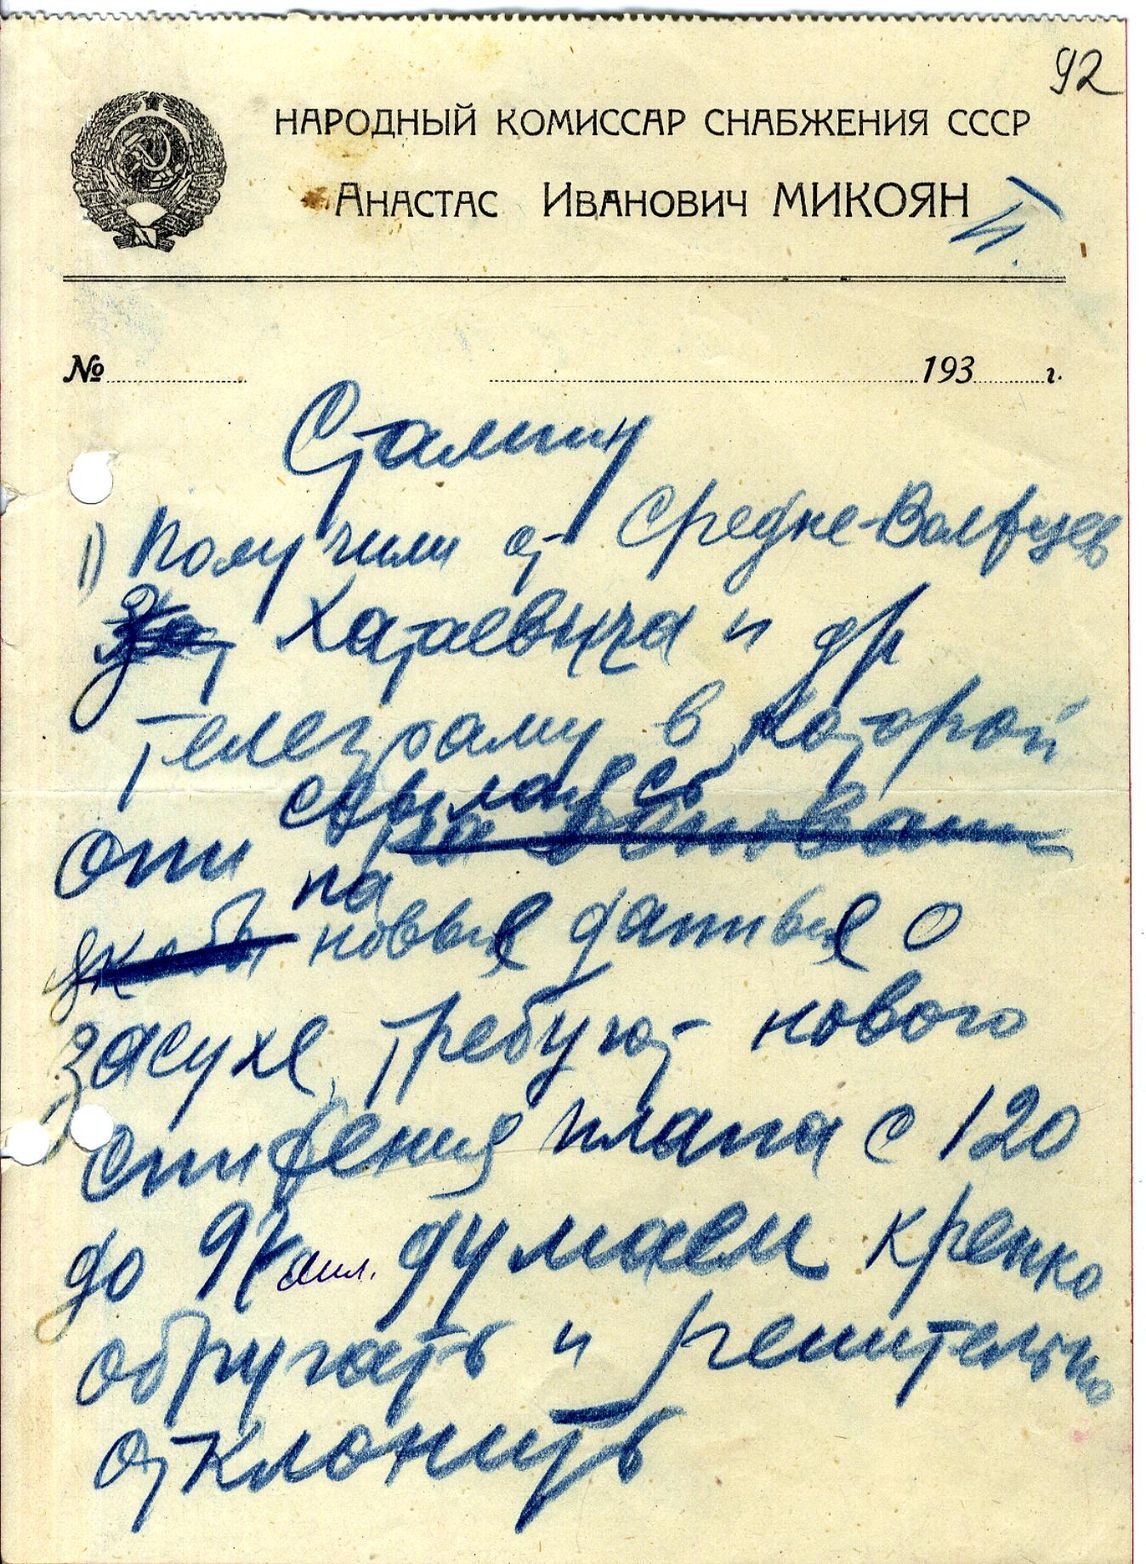 92
НАРОДНЫЙ КОМИССАР СНАБЖЕНИЯ СССР
Анастас Иванович МИКОЯН
№ 193 г.
Сталину
1) Получили от Средне-Волжцев
Хатаевича и др
телеграму в которой
ссылаясь
они на основании
на
якобы новые данные о
засухе, требуют нового
снижения плана с 120
до 97 мил. думаем крепко
обругать и решительно
отклонить